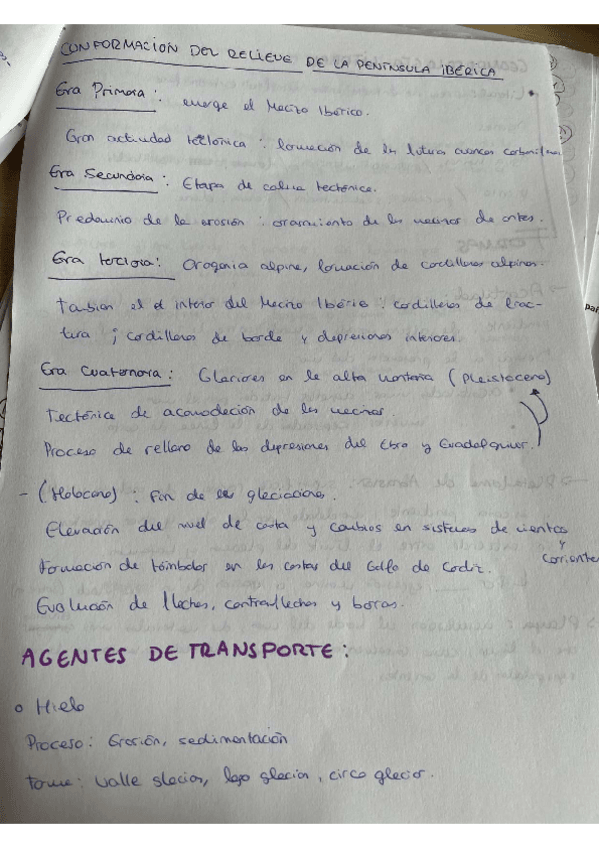 CONFORMACION DEL RELIEVE DE LA PENINSULA IBÉRICA
Era Primera: emerge el Macizo Ibérico.
Gran actividad tectónica: formación de las futuras cuencas carboníferas
Era Secundaria: Etapa de calma tectónica.
Predominio de la erosión: arrasamiento de los macizos de antes.
Era terciaria: Orogenia alpina, formación de cordilleras alpinas.
Tambien el el interior del Macizo Ibérico: cordilleras de frac-
tura; cordilleras de borde y depresiones interiores.
Era Cuaternaria: Glaciares en la alta montaña (Pleistoceno)
Tectónica de acomodación de los
Proceso de relleno de las depresiones del Ebro y Guadalquivir.
- (Holoceno): Fin de las glaciaciones.
Elevación del nivel de costa y cambios en sistemas de vientos
y
corrientes
Formación de tómbolos en las costas del Golfo de Cadiz.
Evolución de flechas, contraflechas y barras.
AGENTES DE TRANSPORTE:
o Hielo
Proceso: Erosión, sedimentación
Forma: Valle glaciar, lago glaciar, circo glaciar.